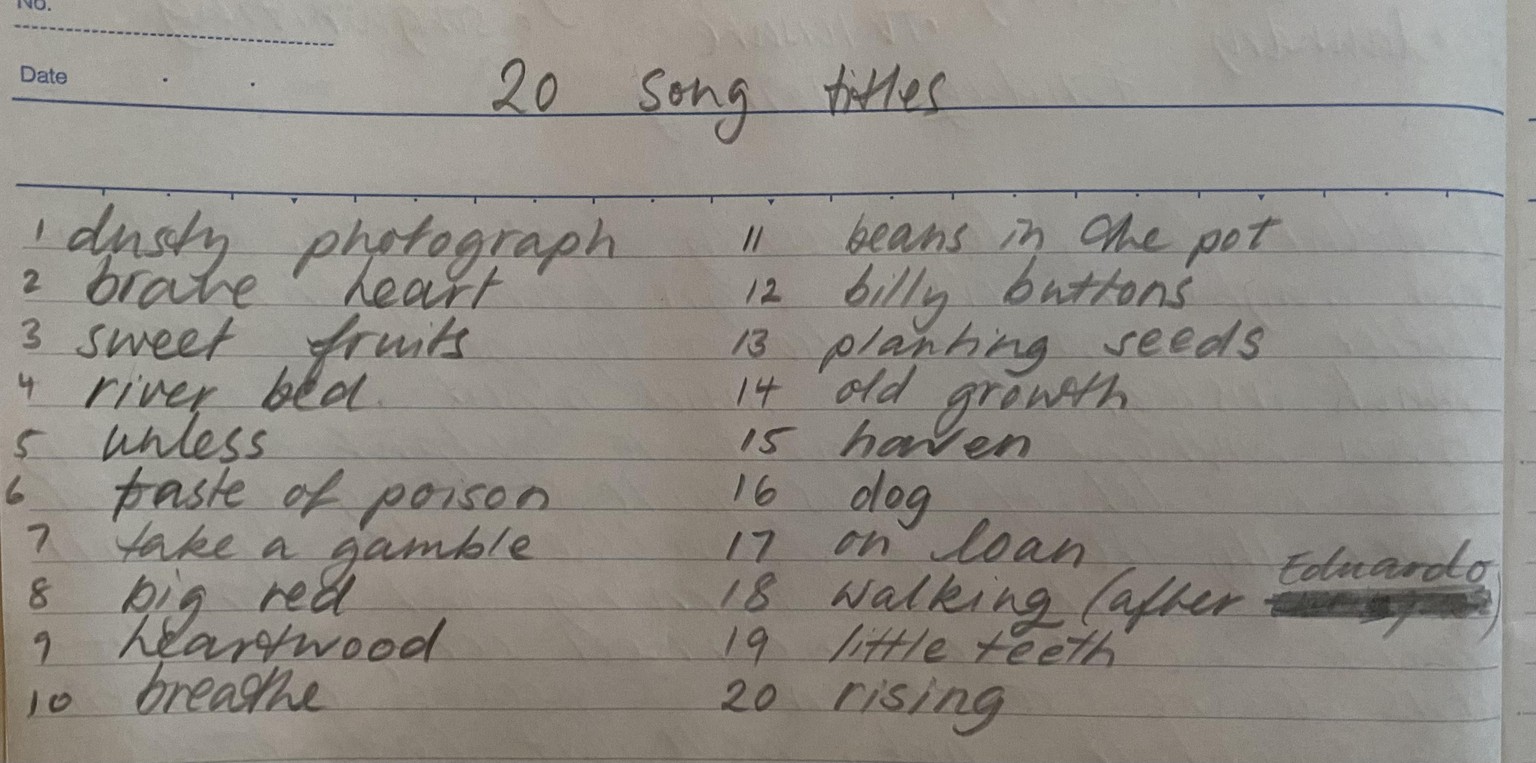 No.
Date
20 song titles
1 dusty photograph
2 brave heart
3 sweet fruits
4 river bed
5 unless
6 taste of poison
7 take a gamble
8 big red
9 heartwood
10 breathe
11 beans in the pot
12 billy buttons
13 planting seeds
14 old growth
15 haven
16 dog
17 on loan
18 walking (after Eduardo)
19 little teeth
20 rising